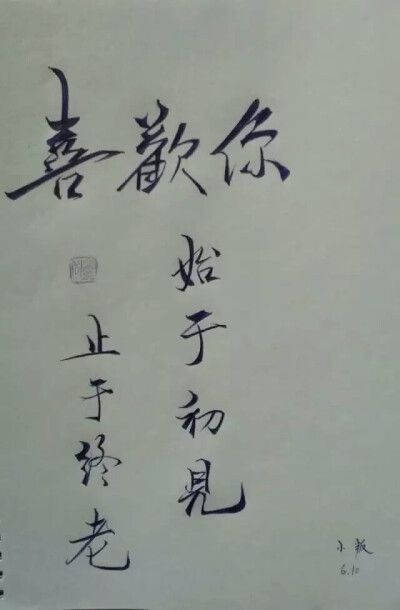 喜歡你
始于初見
止于終老
小叛
6.10